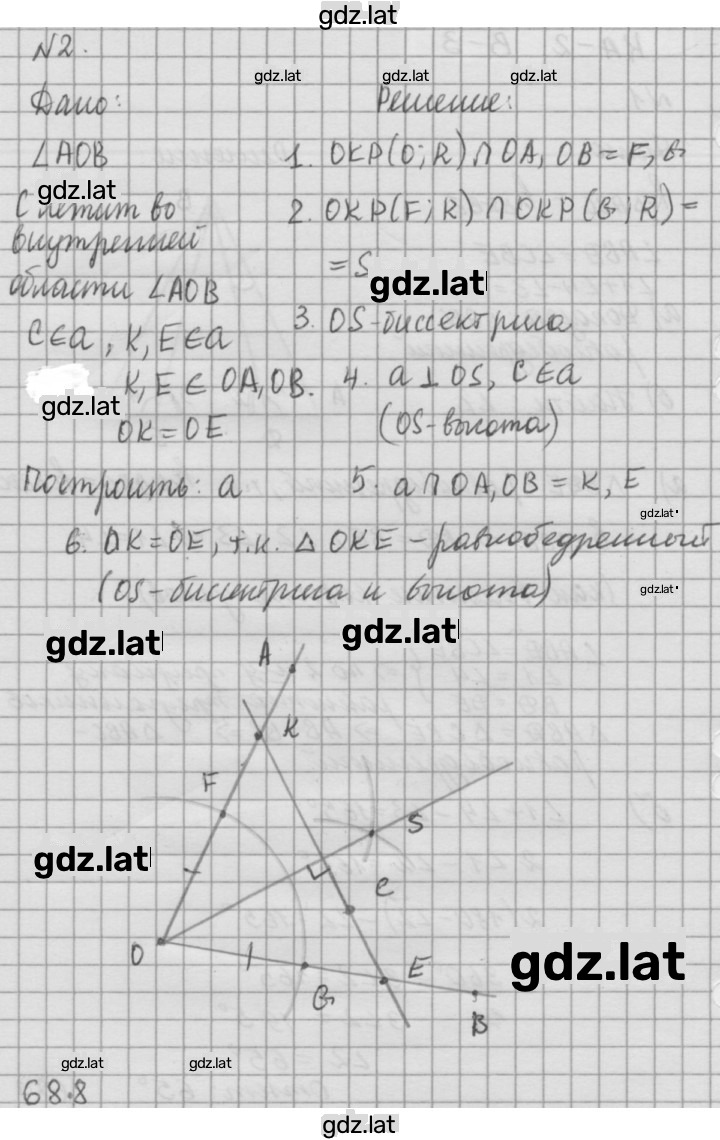 gdz.lat
N2.
gdz.lat gdz.lat gdz.lat
Дано: Решение:
∠AOB 1. ОКР(O; R) ∩ OA, OB = F, G
gdz.lat
C лежит во 2. ОКР(F; R) ∩ ОКР(G; R) =
внутренней
= S gdz.lat
области ∠AOB
3. OS-биссектриса
C∈a, K, E∈a
K, E ∈ OA, OB. 4. a ⊥ OS, C∈a
gdz.lat
OK = OE (OS-высота)
Построить: a 5. a ∩ OA, OB = K, E
gdz.lat
6. OK = OE, т.к. △ OKE - равнобедренный
(OS-биссектриса и высота) gdz.lat
gdz.lat gdz.lat
A
K
F
S
gdz.lat
C
O
E
gdz.lat
G
B
gdz.lat gdz.lat
68.8
gdz.lat